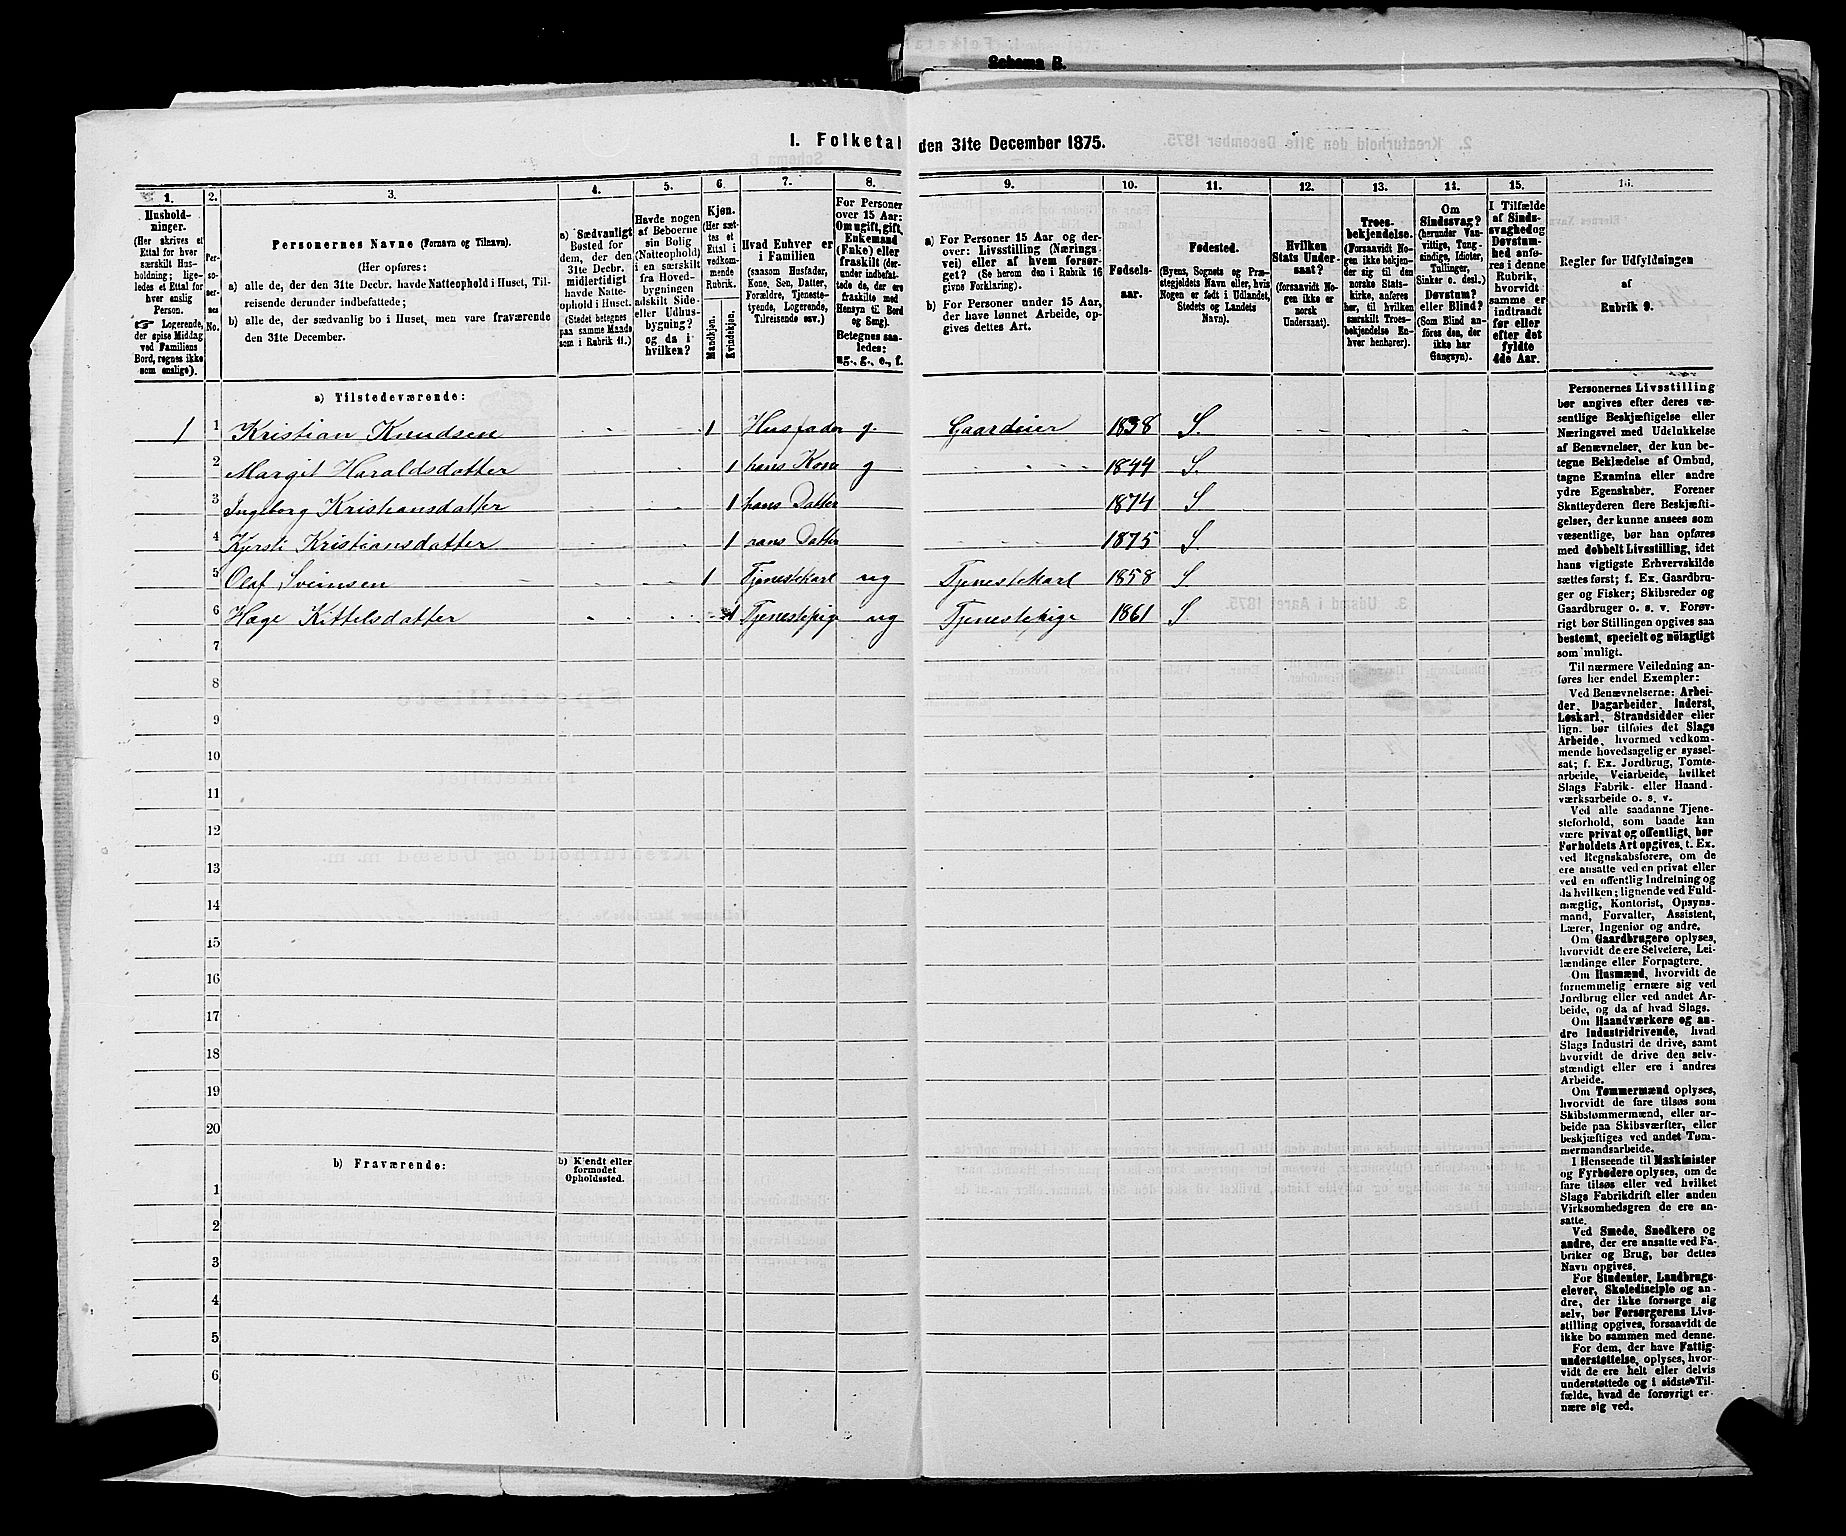 Schema B.
I. Folketal den 31te December 1875.
1.
Hushold-
ninger.
(Her skrives et
Ettal for hver
særskilt Hus-
holdning; lige-
ledes et Ettal for
hver enslig
Person.
☞ Logerende,
der spise Middag
ved Familiens
Bord, regnes ikke
som enslige).
2.
Per-
so-
ner-
nes
No.
3.
Personernes Navne (Fornavn og Tilnavn).
(Her opføres:
a) alle de, der den 31te Decbr. havde Natteophold i Huset, Til-
reisende derunder indbefattede;
b) alle de, der sædvanlig bo i Huset, men vare fraværende
den 31te December.
4.
a) Sædvanligt
Bosted for
dem, der den
31te Decbr.
midlertidigt
havde Natte-
ophold i Huset.
(Stedet betegnes
paa samme Maade
som i Rubrik 11.)
5.
Havde nogen
af Beboerne
sin Bolig
(Natteophold)
i en særskilt
fra Hoved-
bygningen
adskilt Side-
eller Udhus-
bygning?
og da i
hvilken?
6.
Kjøn.
(Her sæt-
tes et
Ettal i
vedkom-
mende
Rubrik.
Mandkjøn.
Kvindekjøn.
7.
Hvad Enhver er
i Familien
(saasom Husfader,
Kone, Søn, Datter,
Forældre, Tjeneste-
tyende, Logerende,
Tilreisende osv.)
8.
For Personer
over 15 Aar:
Om ugift, gift,
Enkemand
(Enke) eller
fraskilt (der-
under indbefat-
tede de, der ere
fraskilte med
Hensyn til Bord
og Seng).
Betegnes saa-
ledes:
ug., g., e., f.
9.
a) For Personer 15 Aar og der-
over: Livsstilling (Nærings-
vei) eller af hvem forsør-
get? (Se herom den i Rubrik 16
givne Forklaring).
b) For Personer under 15 Aar,
der have lønnet Arbeide, op-
gives dettes Art.
10.
Fødsels-
aar.
11.
Fødested.
(Byens, Sognets og Præ-
stegjeldets Navn eller, hvis
Nogen er født i Udlandet,
Stedets og Landets
Navn).
12.
Hvilken
Stats Under-
saat?
(forsaavidt No-
gen ikke er
norsk
Undersaat).
13.
Troes-
bekjendelse.
(Forsaavidt No-
gen ikke bekjen-
der sig til den
norske Stats-
kirke, anføres
her, til hvilken
særskilt Troes-
bekjendelse En-
hver henhører).
14.
Om
Sindssvag?
(herunder Van-
vittige, Tung-
sindige, Idioter,
Tullinger,
Sinker o. desl.)
Døvstum?
eller Blind?
(Som Blind an-
føres den, der
ikke har
Gangsyn).
15.
I Tilfælde
af Sinds-
svaghed og
Døvstum-
hed anfø-
res i denne
Rubrik,
hvorvidt
samme er
indtraadt
før eller
efter det
fyldte
4de Aar.
16.
Regler for Udfyldningen
af
Rubrik 9.
a) Tilstedeværende:
1 1 Kristian Knudsen 1 Husfader g. Gaardeier 1838 S.
2 Margit Haraldsdatter 1 hans Kone g 1844 S.
3 Ingeborg Kristiansdatter 1 hans Datter 1874 S
4 Kjersti Kristiansdatter 1 hans Datter 1875 S.
5 Olaf Sveinsen 1 Tjenestekarl ug Tjenestekarl 1858 S
6 Hæge Kittelsdatter 1 Tjenestepige ug Tjenestepige 1861 S
7
8
9
10
11
12
13
14
15
16
17
18
19
20
b) Fraværende:
b) Kjendt eller
formodet
Opholdssted.
1
2
3
4
5
6
Personernes Livsstilling
bør angives efter deres væ-
sentlige Beskjæftigelse eller
Næringsvei med Udelukkelse
af Benævnelser, der kun be-
tegne Beklædelse af Ombud,
tagne Examina eller andre
ydre Egenskaber. Forener
Skatteyderen flere Beskjæfti-
gelser, der kunne ansees som
væsentlige, bør han opføres
med dobbelt Livsstilling, idet
hans vigtigste Erhvervskilde
sættes først; f. Ex. Gaardbru-
ger og Fisker; Skibsreder og
Gaardbruger o. s. v. Forøv-
rigt bør Stillingen opgives saa
bestemt, specielt og nøiagtigt
som muligt.
Til nærmere Veiledning an-
føres her endel Exempler:
Ved Benævnelserne: Arbei-
der, Dagarbeider, Inderst,
Løskarl, Strandsidder eller
lign. bør tilføies det Slags
Arbeide, hvormed vedkom-
mende hovedsagelig er syssel-
sat; f. Ex. Jordbrug, Tomte-
arbeide, Veiarbeide, hvilket
Slags Fabrik- eller Haand-
værksarbeide o. s. v.
Ved alle saadanne Tjene-
steforhold, som baade kan
være privat og offentligt, bør
Forholdets Art opgives, t. Ex.
ved Regnskabsførere, om de
ere ansatte ved en privat eller
ved en offentlig Indretning og
da hvilken; lignende ved Fuld-
mægtig, Kontorist, Opsyns-
mand, Forvalter, Assistent,
Lærer, Ingeniør og andre.
Om Gaardbrugere oplyses,
hvorvidt de ere Selveiere, Lei-
lændinge eller Forpagtere.
Om Husmænd, hvorvidt de
fornemmelig ernære sig ved
Jordbrug eller ved andet Ar-
beide, og da af hvad Slags.
Om Haandværkere og an-
dre Industridrivende, hvad
Slags Industri de drive, samt
hvorvidt de drive den selv-
stændigt eller ere i andres
Arbeide.
Om Tømmermænd oplyses,
hvorvidt de fare tilsøs som
Skibstømmermænd, eller ar-
beide paa Skibsværfter, eller
beskjæftiges ved andet Tøm-
mermandsarbeide.
I Henseende til Maskinister
og Fyrbødere oplyses, om de
fare tilsøs eller ved hvilket
Slags Fabrikdrift eller anden
Virksomhedsgren de ere an-
satte.
Ved Smede, Snedkere og
andre, der ere ansatte ved Fa-
briker og Brug, bør dettes
Navn opgives.
For Studenter, Landbrugs-
elever, Skoledisciple og an-
dre, der ikke forsørge sig
selv, bør Forsørgerens Livs-
stilling opgives, forsaavidt de
ikke bo sammen med denne.
For dem, der have Fattig-
understøttelse, oplyses, hvor-
vidt de ere helt eller delvis
understøttede og i sidste Til-
fælde, hvad de forøvrigt er-
nære sig ved.